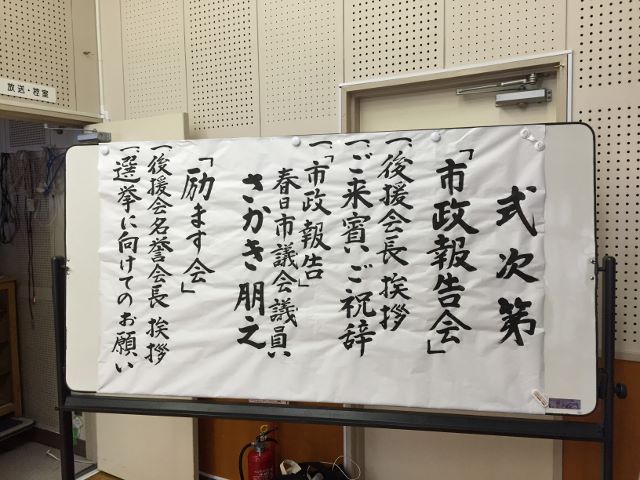 式次第
「市政報告会」
一、後援会長 挨拶
一、ご来賓、ご祝辞
一、「市政報告」
春日市議会議員、
さかき朋之
「励ます会」
一、後援会名誉会長 挨拶
一、選挙に向けてのお願い
放送・控室